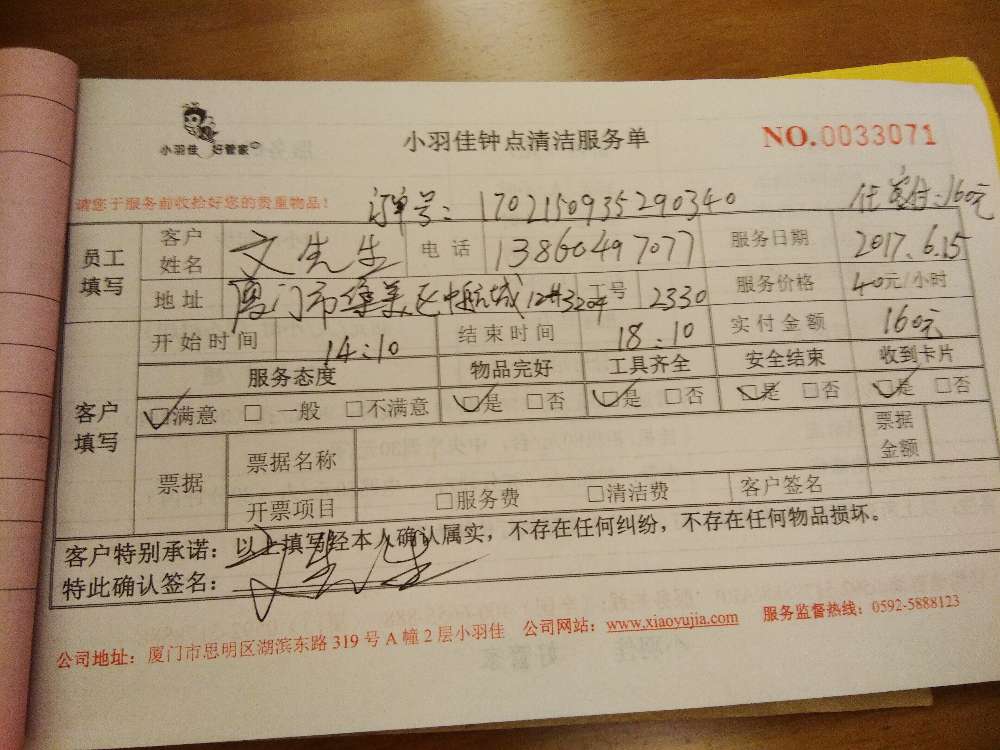 小羽佳 好管家
小羽佳钟点清洁服务单
NO.0033071
请您于服务前收拾好您的贵重物品！
订单号：1702150935290340
付：160元
员工填写 客户姓名 文先生 电话 13860497077 服务日期 2017.6.15
地址 厦门市集美区中航城 工号 2330 服务价格 40元/小时
客户填写 开始时间 14:10 结束时间 18:10 实付金额 160元
服务态度 物品完好 工具齐全 安全结束 收到卡片
☑满意 □一般 □不满意 ☑是 □否 ☑是 □否 ☑是 □否 ☑是 □否
票据 票据名称 票据金额
开票项目 □服务费 □清洁费 客户签名
客户特别承诺：以上填写经本人确认属实，不存在任何纠纷，不存在任何物品损坏。
特此确认签名：文先生
公司地址：厦门市思明区湖滨东路 319 号 A 幢 2 层小羽佳 公司网站：www.xiaoyujia.com 服务监督热线：0592-5888123